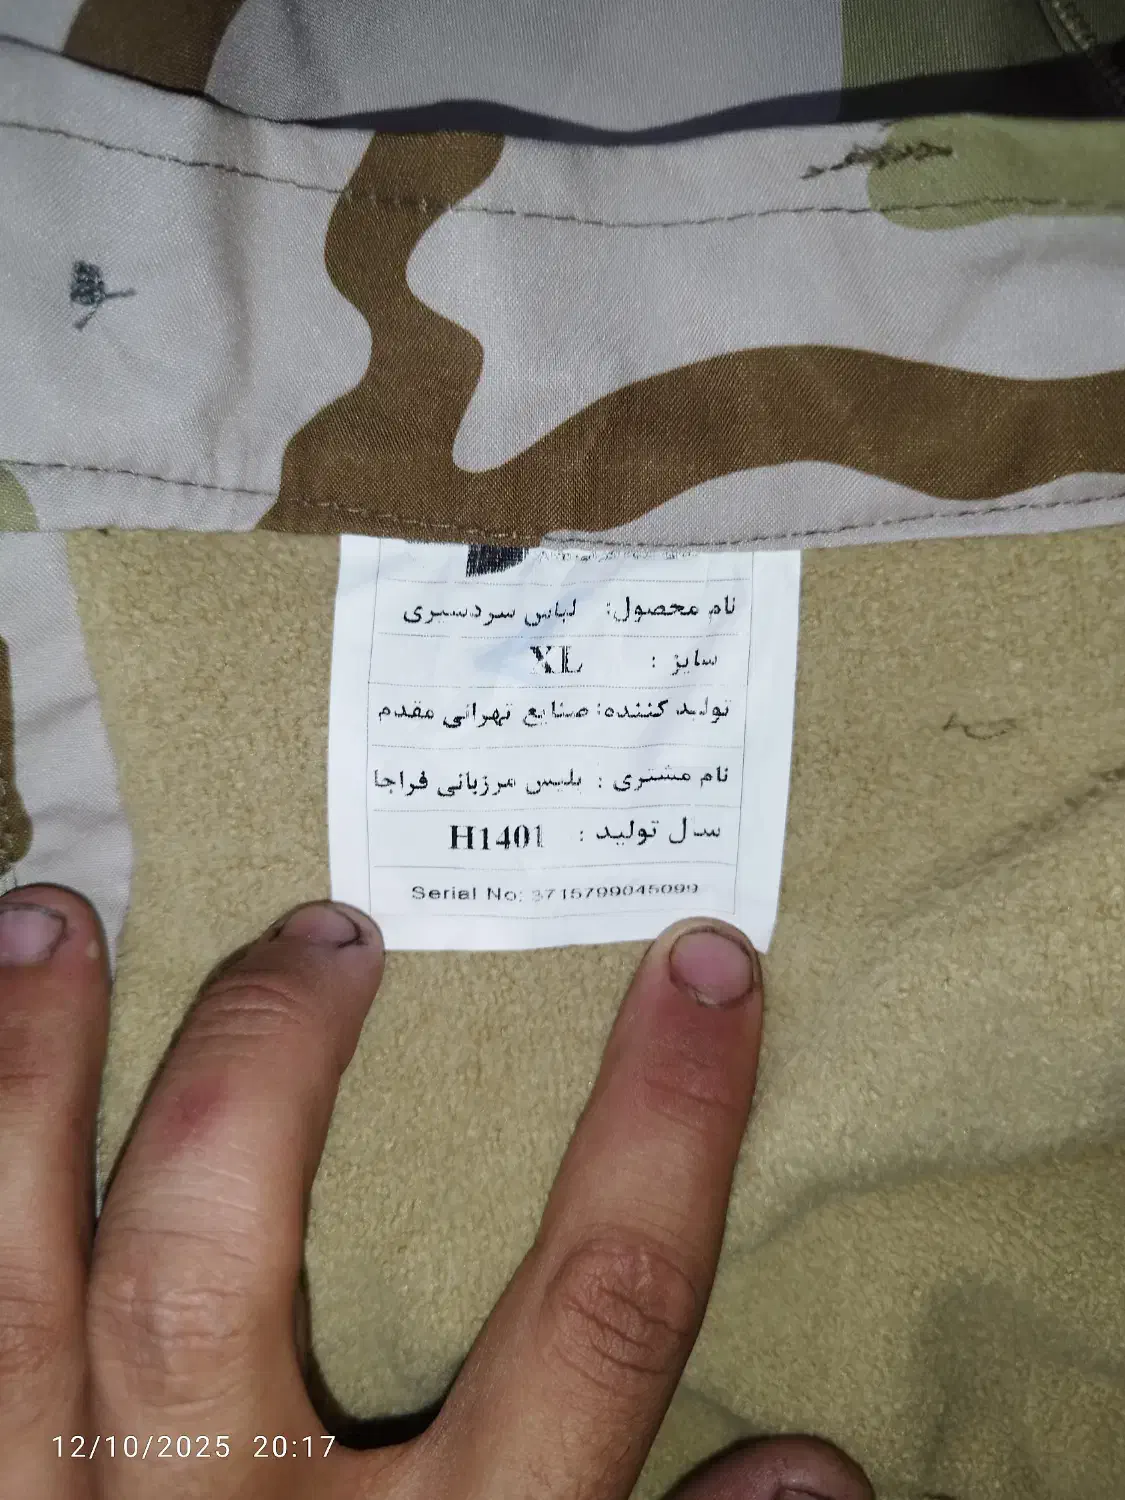 نام محصول: لباس سردسیری
سایز : XL
تولید کننده: صنایع تهرانی مقدم
نام مشتری : پلیس مرزبانی فراجا
سال تولید : H1401
Serial No: 3715799045099
12/10/2025 20:17